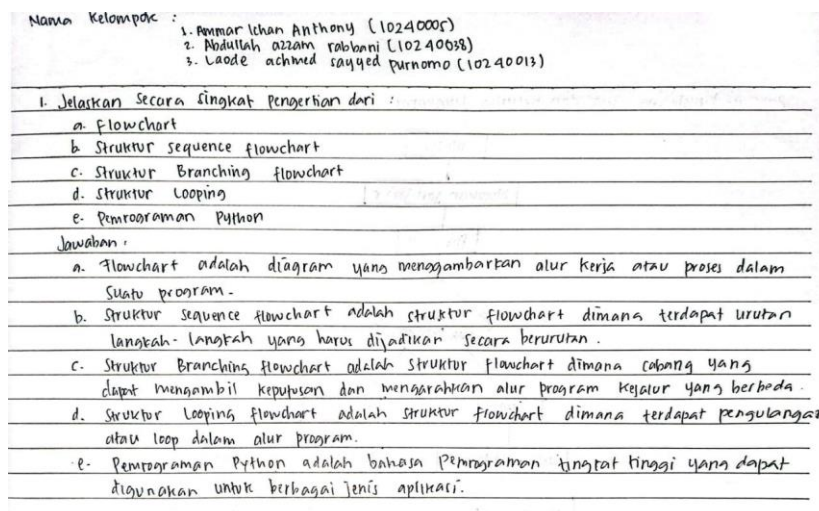 Nama Kelompok :
1. Ammar Ichan Anthony (10240005)
2. Abdullah azzam rabbani (10240038)
3. Laode achmed sayyed purnomo (10240013)
1. Jelaskan Secara singkat Pengertian dari :
a. Flowchart
b Struktur sequence flowchart
c. Struktur Branching flowchart
d. Struktur Looping
e. Pemrograman Python
Jawaban :
a. Flowchart adalah diagram yang menggambarkan alur kerja atau proses dalam
suatu program.
b. Struktur sequence flowchart adalah struktur flowchart dimana terdapat urutan
langkah-langkah yang harus dijadikan secara berurutan.
c. Struktur Branching flowchart adalah struktur flowchart dimana cabang yang
dapat mengambil keputusan dan mengarahkan alur program kejalur yang berbeda.
d. Struktur Looping flowchart adalah struktur flowchart dimana terdapat pengulangan
atau loop dalam alur program.
e. Pemrograman Python adalah bahasa Pemrograman tingkat tinggi yang dapat
digunakan untuk berbagai jenis aplikasi.